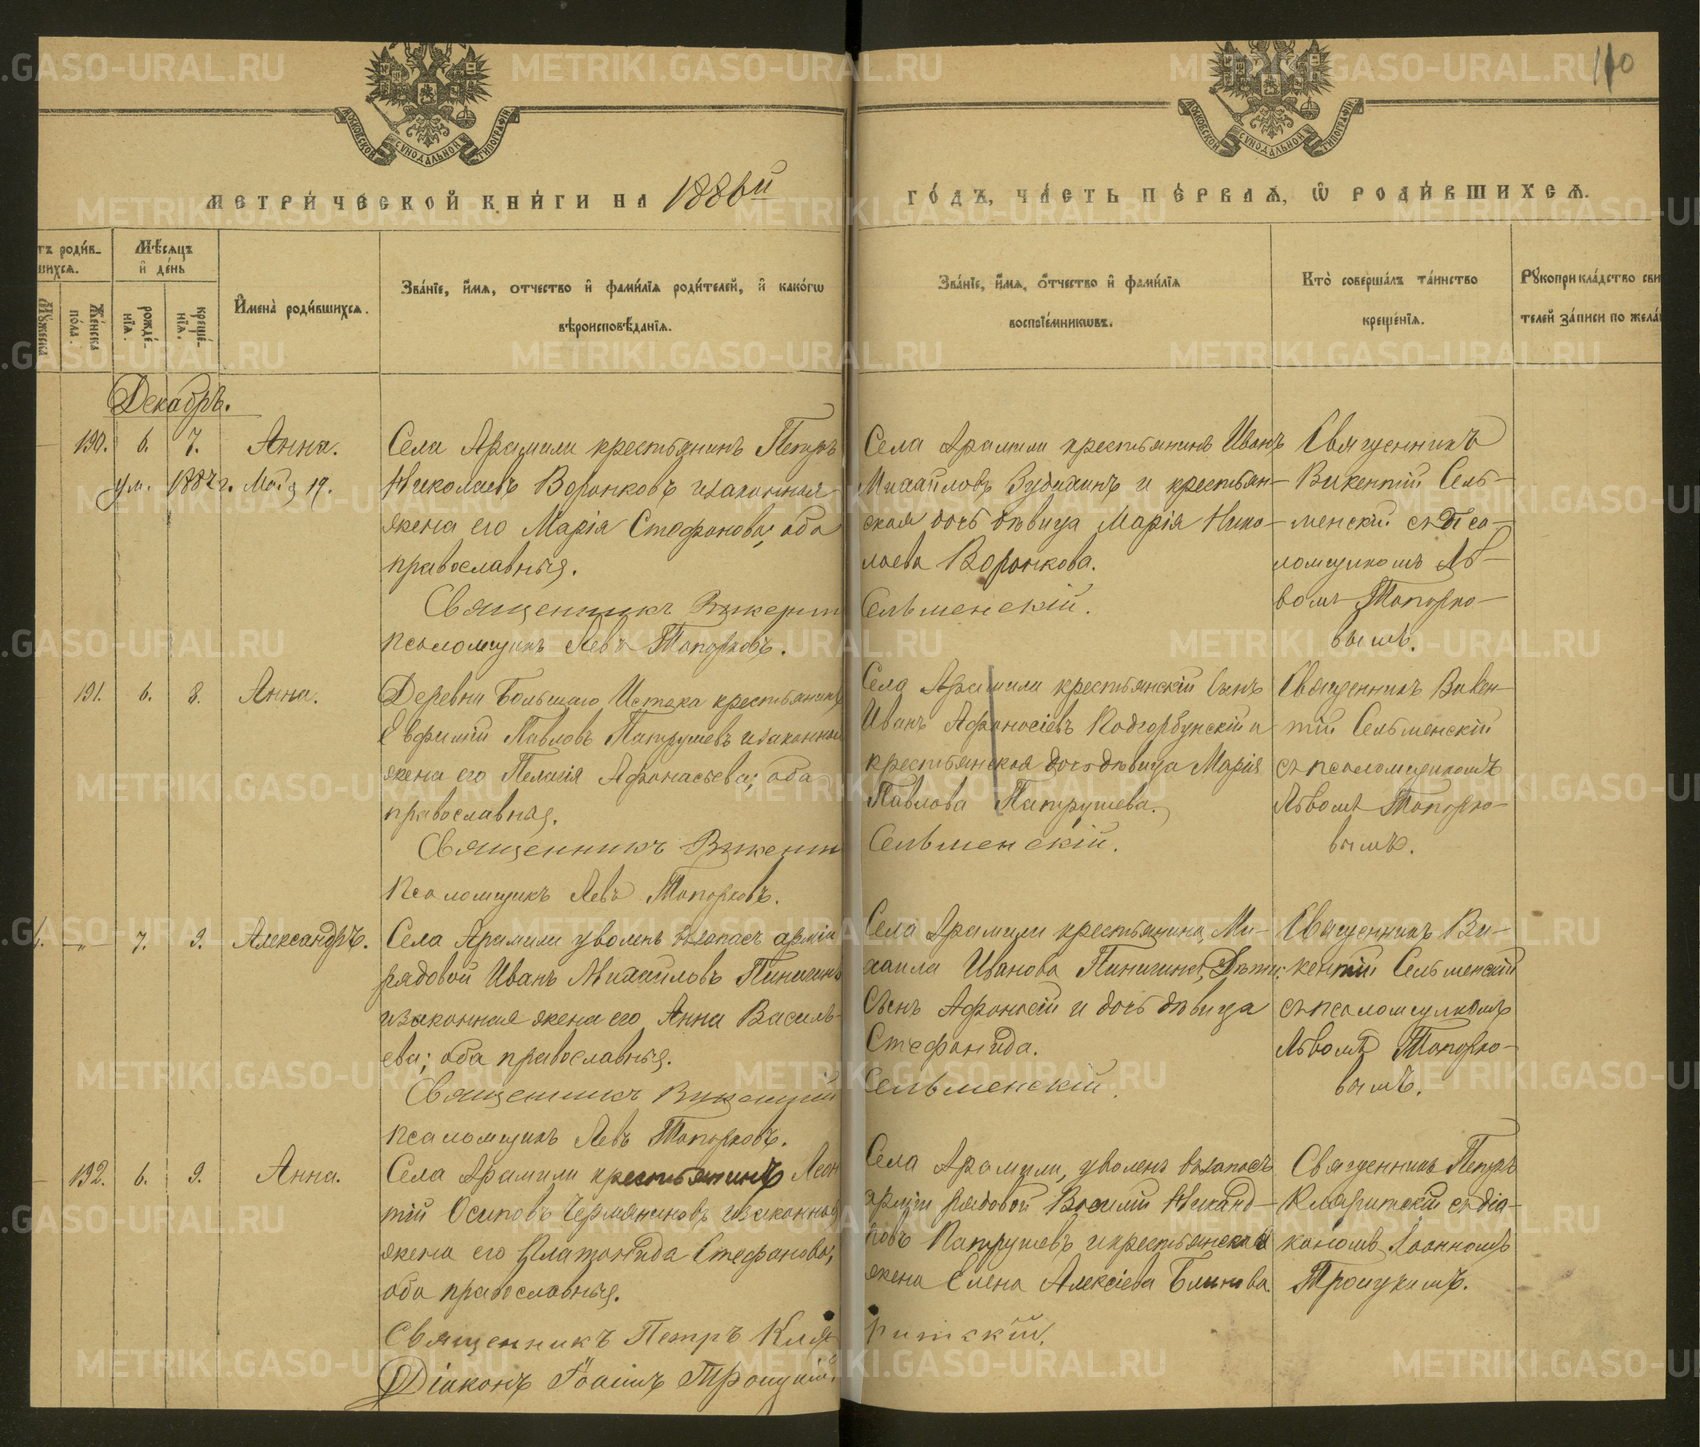 110
МЕТРИ́ЧЕСКОЙ КНИ́ГИ НА 1886й
ГО́ДЪ, ЧА́СТЬ ПЕ́РВАЯ, Ѡ РОДИ́ВШИХСЯ.
тъ роди́в-
шихся.
Мѣ́сяцъ
и҆ де́нь
Мꙋ́жеска
Же́нска
пола.
рожде́-
нїѧ.
креще́-
нїѧ.
И҆мена̀ роди́вшихся.
Зва́нїе, и҆́мя, отчество и҆ фами́лїя роди́телей, и҆ како́гѡ
вѣроисповѣ́данїя.
Зва́нїе, и҆́мя, о҆́тчество и҆ фами́лїя
воспрїе́мникѡвъ.
Кто̀ соверша́лъ та́инство
креще́нїя.
Рꙋкоприкла́дство сви
телей за́писи по жела́
Декабрь.
130. 6. 7. Анна.
ум. 1887 г. Мая 19.
Села Арамили крестьянинъ Петръ
Николаевъ Воронковъ и законная
жена его Марія Стефанова; оба
православныя.
Священникъ Викентій
Псаломщикъ Левъ Топорковъ.
Села Арамили крестьянинъ Иванъ
Михайловъ Зубихинъ и крестьян-
ская дочь дѣвица Марія Нико-
лаева Воронкова.
Сельменскій.
Священникъ
Викентій Сель-
менскій съ Пса-
ломщикомъ Ль-
вомъ Топорко-
вымъ.
131. 6. 8. Анна.
Деревни Большаго Истока крестьянинъ
Евфимій Павловъ Патрушевъ и законная
жена его Пелагія Афонасьева; оба
православныя.
Священникъ Викентій
Псаломщикъ Левъ Топорковъ.
Села Арамили крестьянскій сынъ
Иванъ Афонасіевъ Подгорбунскій и
крестьянская дочь дѣвица Марія
Павлова Патрушева.
Сельменскій.
Священникъ Викен-
тій Сельменскій
съ псаломщикомъ
Львомъ Топорко-
вымъ.
-"- 7. 9. Александръ.
Села Арамили уволенъ въ запасъ арміи
рядовой Иванъ Михаиловъ Пиничинъ
и законная жена его Анна Василь-
ева; оба православныя.
Священникъ Викентій
Псаломщикъ Левъ Топорковъ.
Села Арамили крестьянина Ми-
хаила Иванова Пиничина, Дѣти:
Сынъ Афонасій и дочь дѣвица
Стефанида.
Сельменскій.
Священникъ Ви-
кентій Сельменскій
съ псаломщикомъ
Львомъ Топорко-
вымъ.
132. 6. 9. Анна.
Села Арамили крестьянинъ Леон
тій Осиповъ Чермяниковъ и законная
жена его Платонида Стефанова;
оба православныя.
Священникъ Петръ Кля
Діаконъ Іоаннъ Троицкій.
Села Арамили, уволенъ въ запасъ
арміи рядовой Василій Никанд-
ровъ Патрушевъ и крестьянская
жена Елена Алексіева Блинова
ритскій.
Священникъ Петръ
Кляритскій съ діа-
кономъ Іоанномъ
Троицкимъ.